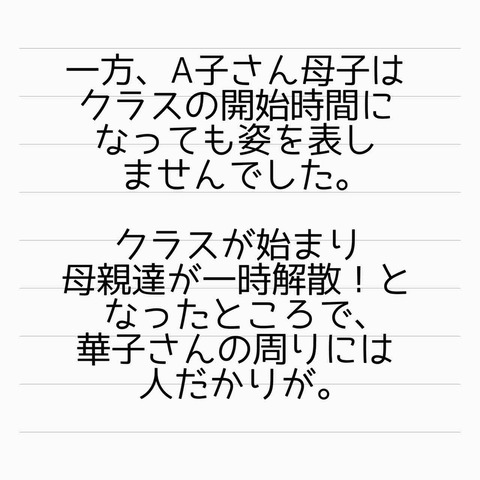 一方、A子さん母子は
クラスの開始時間に
なっても姿を表し
ませんでした。
クラスが始まり
母親達が一時解散！と
なったところで、
華子さんの周りには
人だかりが。